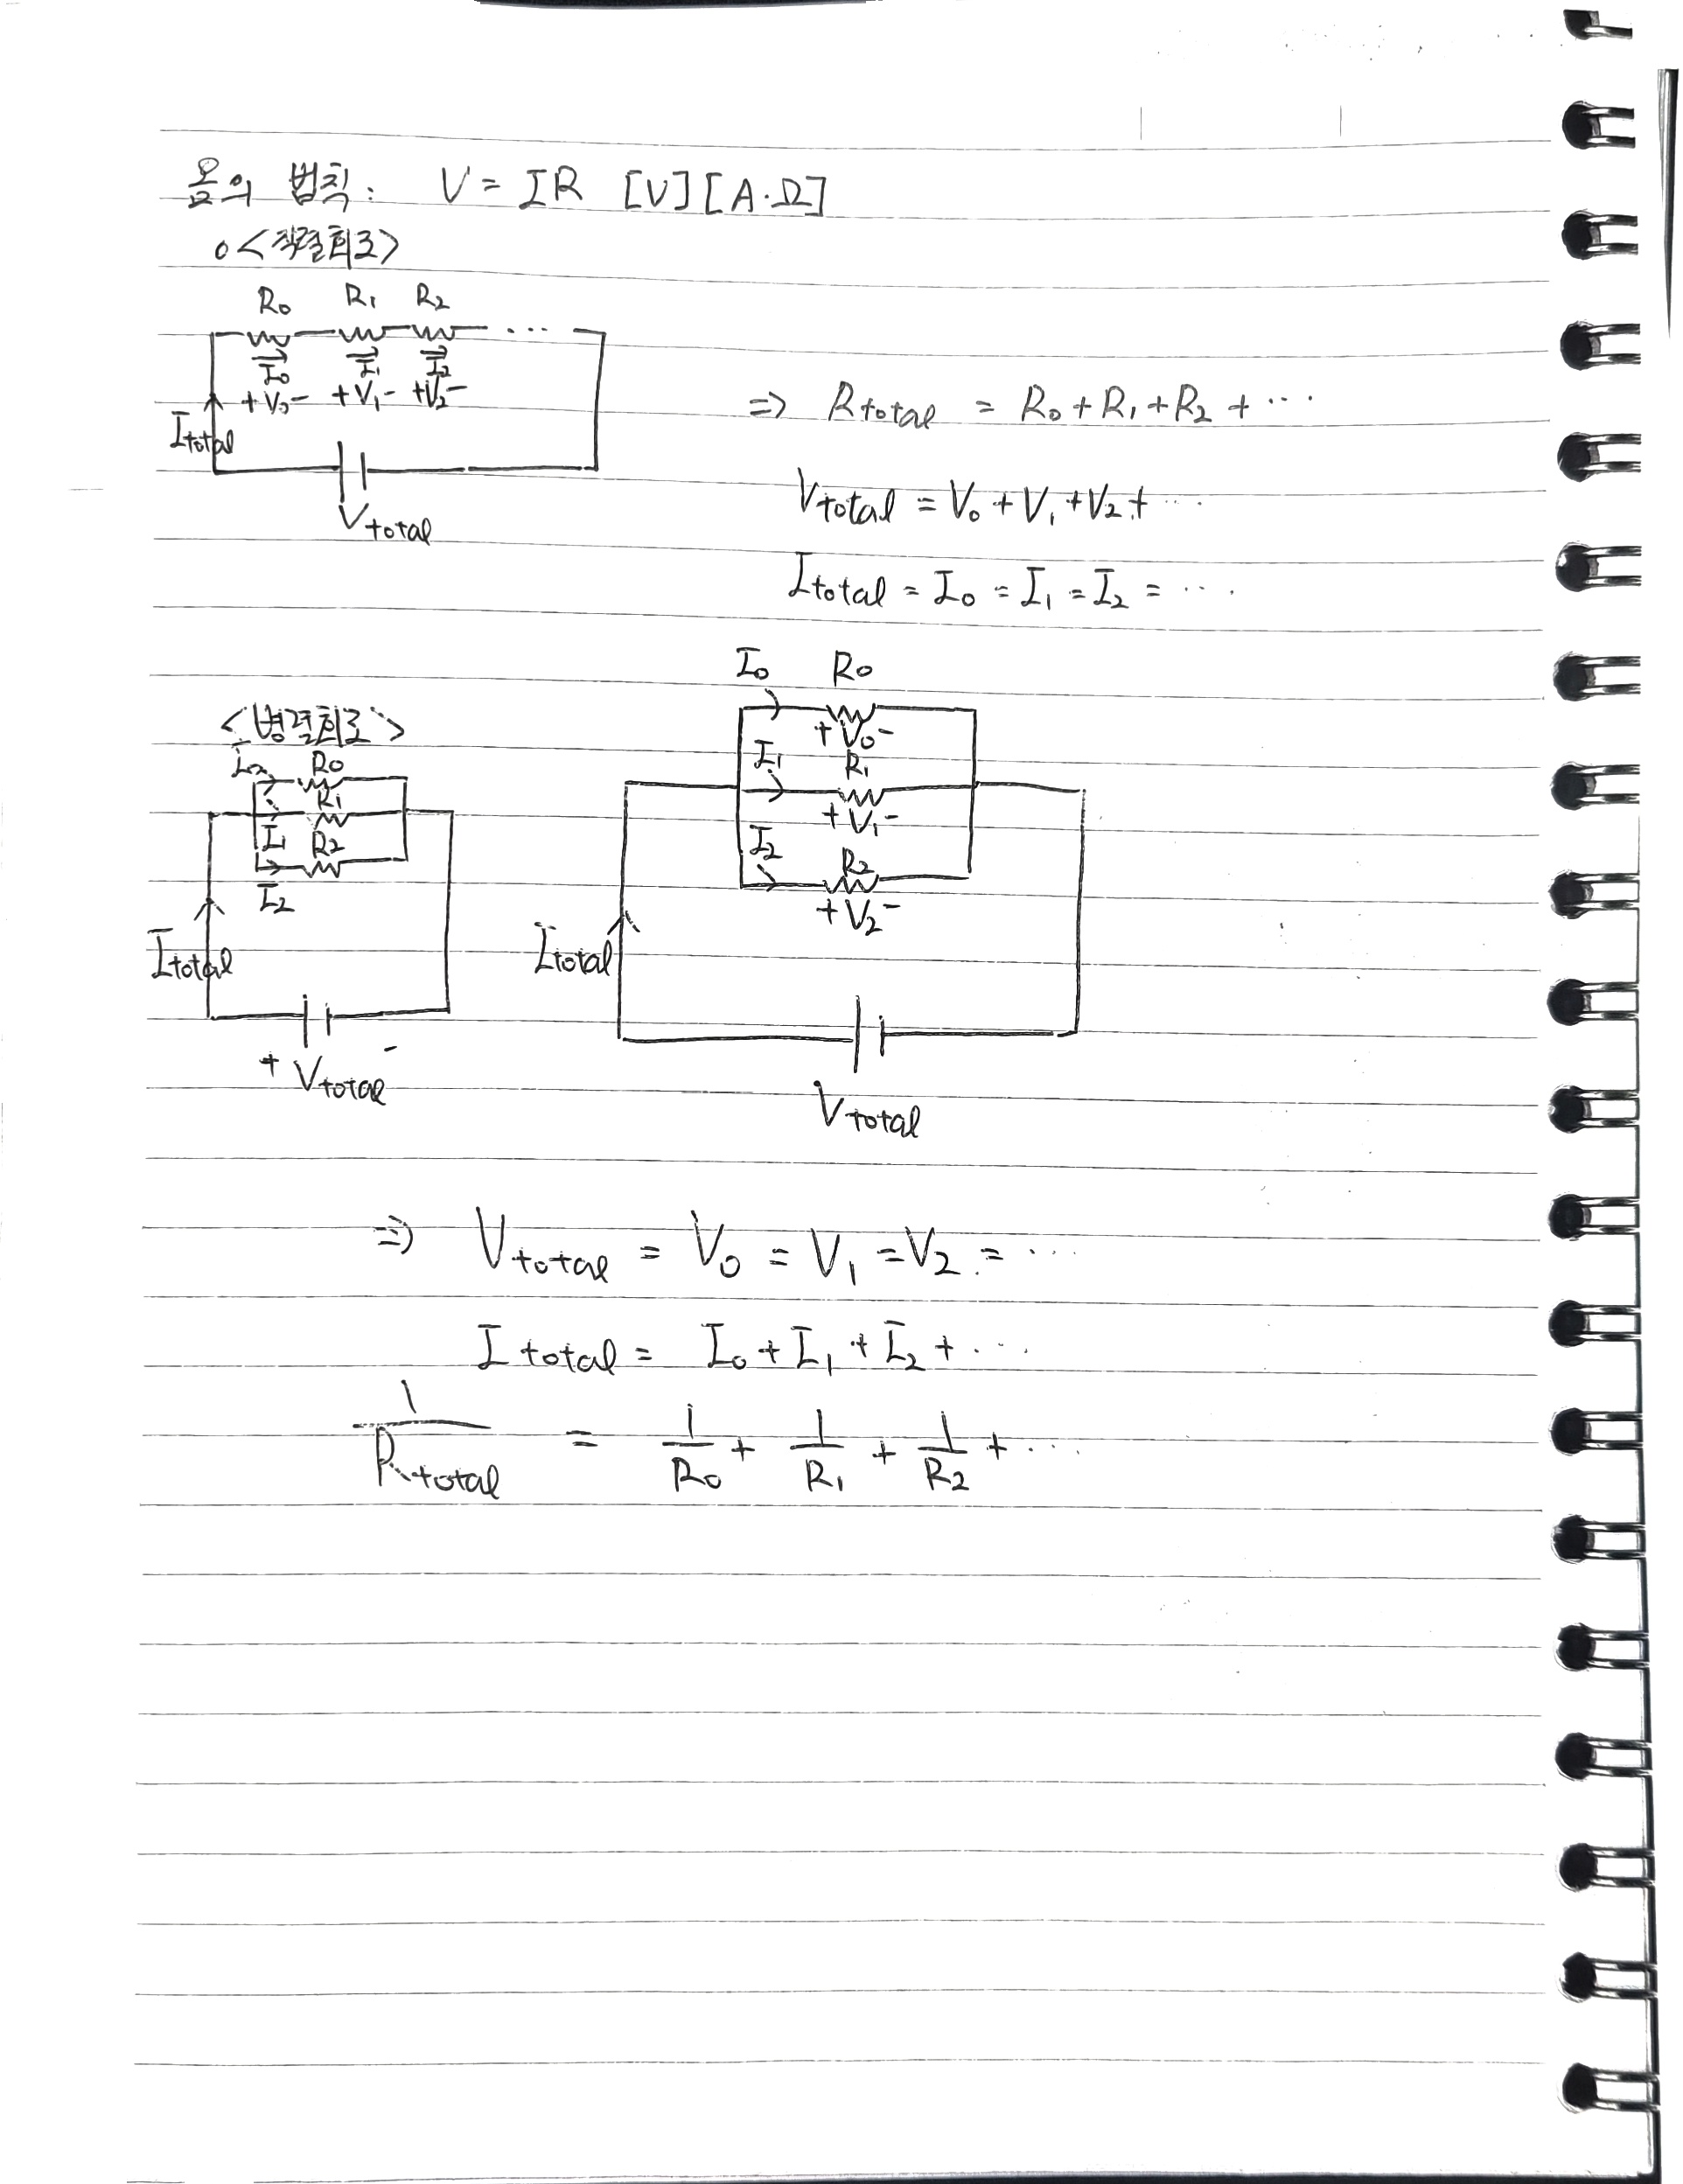 옴의 법칙: V = IR [V][A·Ω]
o<직렬회로>
R₀ R₁ R₂ ...
I₀ I₁ I₂
+V₀- +V₁- +V₂-
Itotal
Vtotal
⇒ Rtotal = R₀+R₁+R₂+...
Vtotal = V₀+V₁+V₂+...
Itotal = I₀ = I₁ = I₂ = ...
<병렬회로>
I₀ R₀
I₁ R₁
I₂ R₂
Itotal
+ Vtotal -
I₀ R₀
+V₀-
I₁ R₁
+V₁-
I₂ R₂
+V₂-
Itotal
Vtotal
⇒ Vtotal = V₀ = V₁ = V₂ = ...
Itotal = I₀+I₁+I₂+...
1/Rtotal = 1/R₀ + 1/R₁ + 1/R₂ + ...